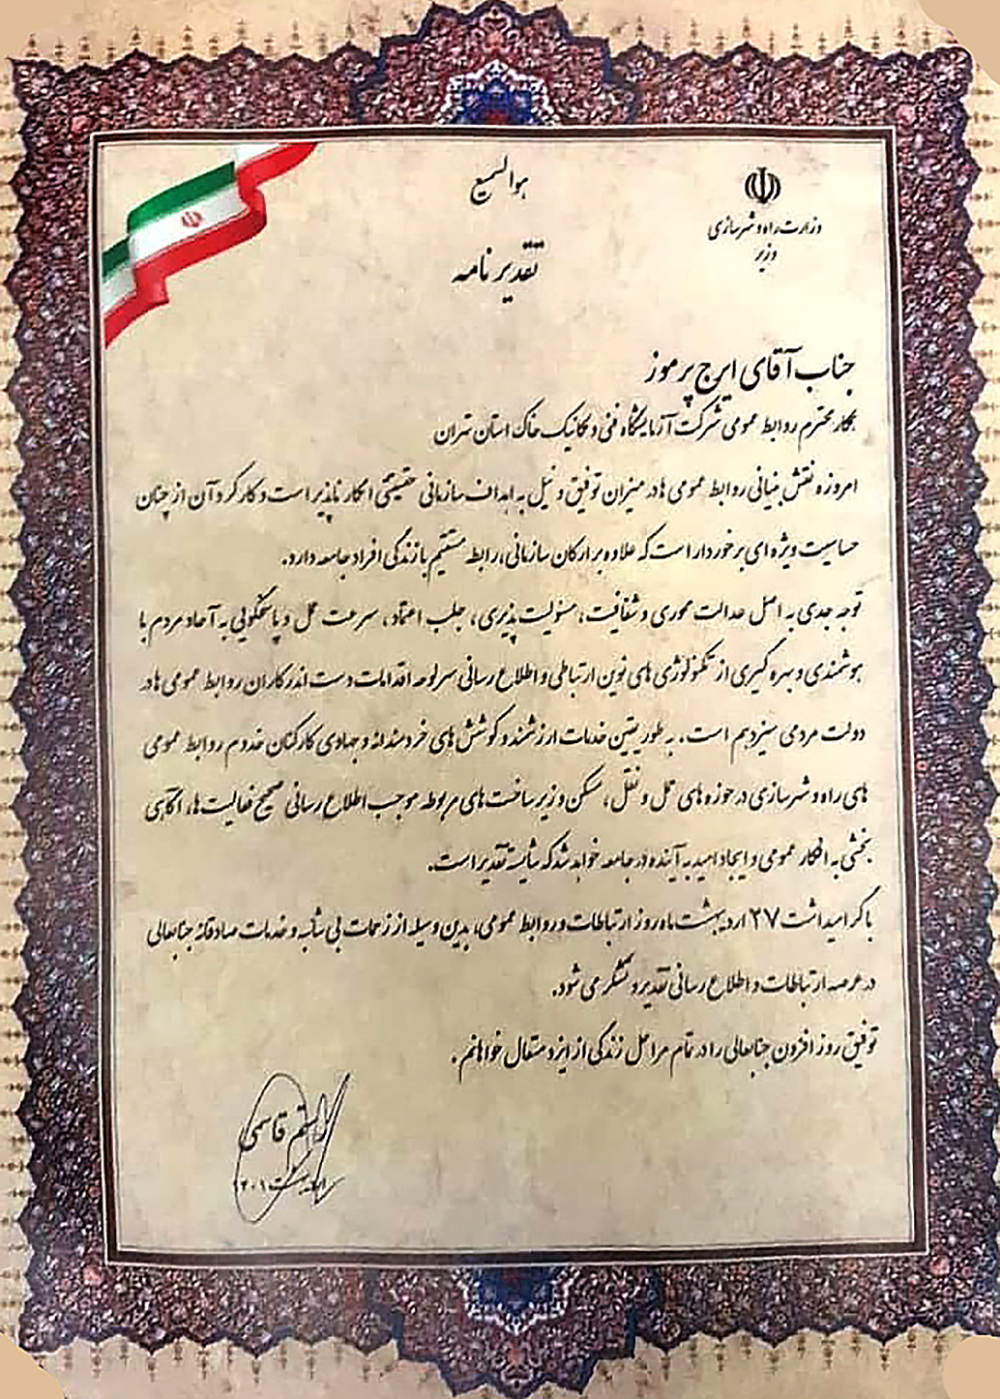 هوالسمیع
وزارت راه و شهرسازی
وزیر
تقدیر نامه
جناب آقای ایرج پرموز
همکار محترم روابط عمومی شرکت آزمایشگاه فنی و مکانیک خاک استان تهران
امروزه نقش بنیانی روابط عمومی ها در میزان توفیق و نیل به اهداف سازمانی حقیقتی انکار ناپذیر است و کارکرد آن از چنان
حساسیت ویژه ای برخوردار است که علاوه بر ارکان سازمانی، رابطه مستقیم با زندگی افراد جامعه دارد.
توجه جدی به اصل عدالت محوری و شفافیت، مسئولیت پذیری، جلب اعتماد، سرعت عمل و پاسخگویی به آحاد مردم با
هوشمندی و بهره گیری از تکنولوژی های نوین ارتباطی و اطلاع رسانی سرلوحه اقدامات دست اندرکاران روابط عمومی ها در
دولت مردمی سیزدهم است. به طور یقین خدمات ارزشمند و کوشش های خردمندانه و جهادی کارکنان خدوم روابط عمومی
های راه و شهرسازی در حوزه های حمل و نقل، مسکن و زیرساخت های مربوطه موجب اطلاع رسانی صحیح فعالیت ها، آگاهی
بخشی به افکار عمومی و ایجاد امید به آینده در جامعه خواهد شد که شایسته تقدیر است.
با گرامیداشت ۲۷ اردیبهشت ماه روز ارتباطات و روابط عمومی، بدین وسیله از زحمات بی شائبه و خدمات صادقانه جنابعالی
در عرصه ارتباطات و اطلاع رسانی تقدیر و تشکر می شود.
توفیق روز افزون جنابعالی را در تمام مراحل زندگی از ایزد متعال خواهانم.
رستم قاسمی
اردیبهشت ۱۴۰۱